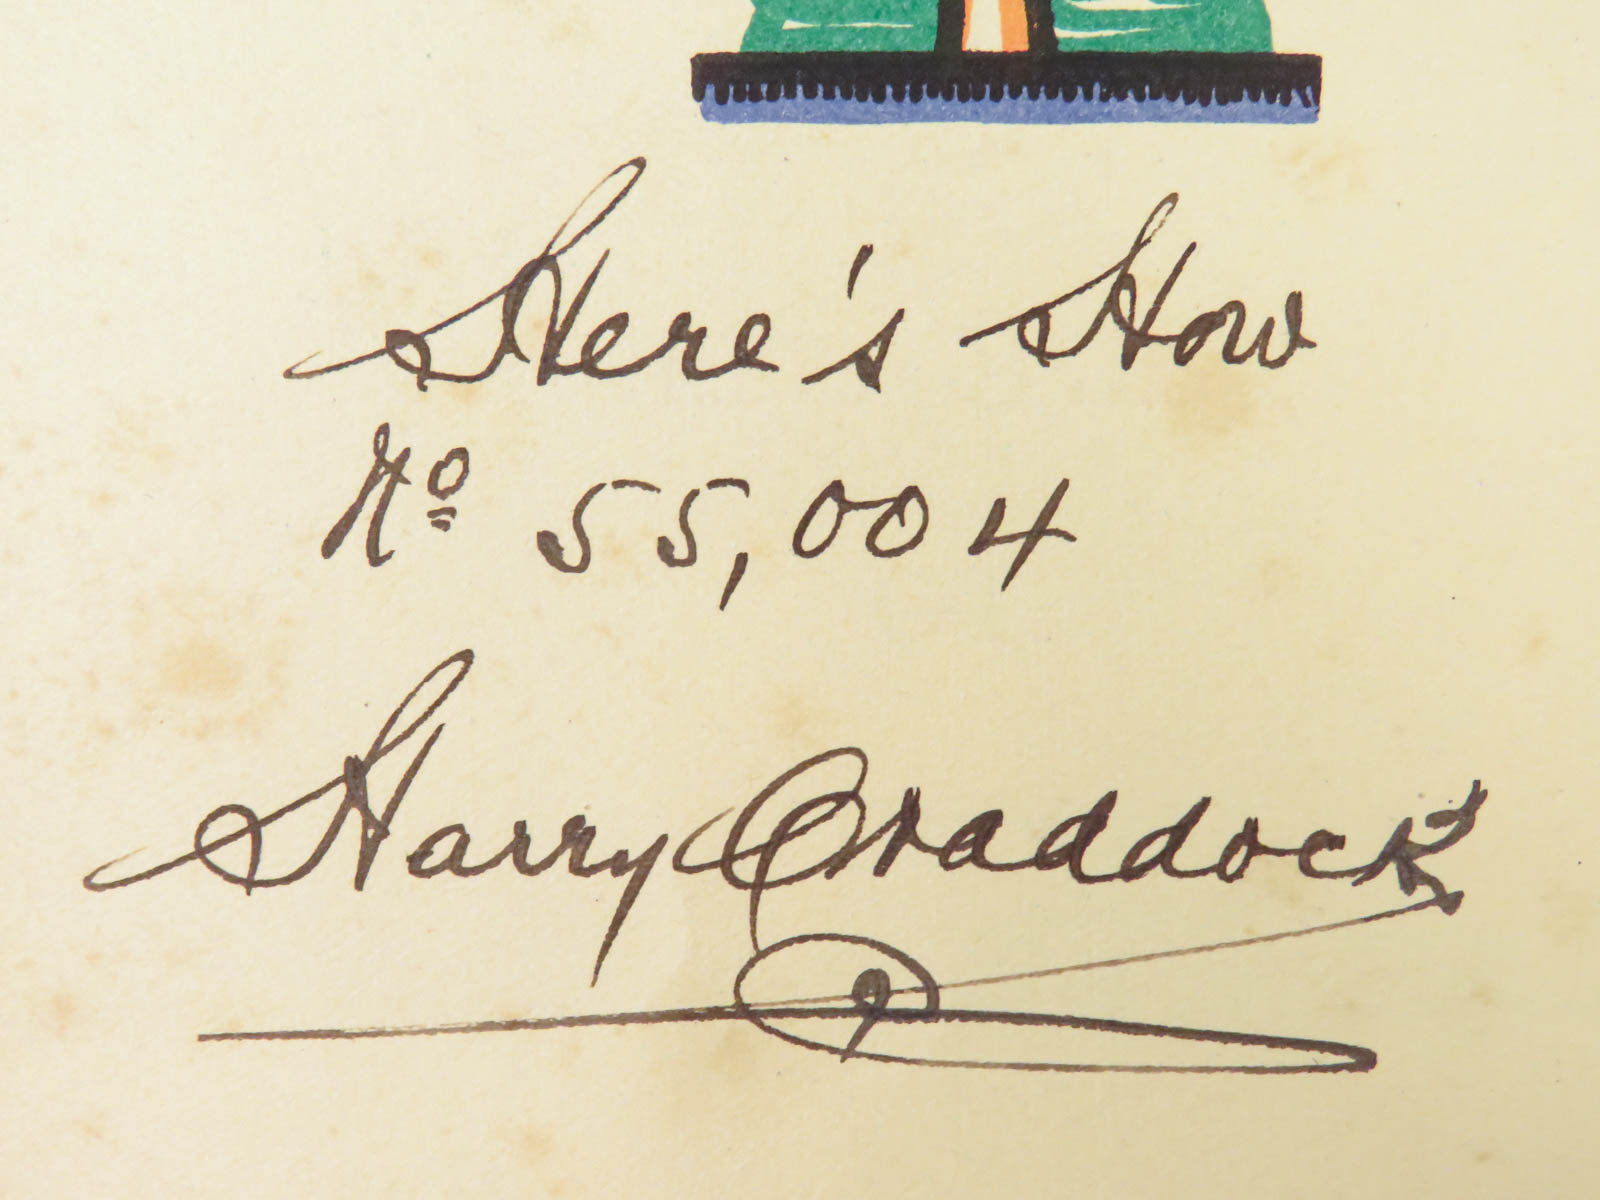 Here's How
Nº 55,004
Harry Craddock